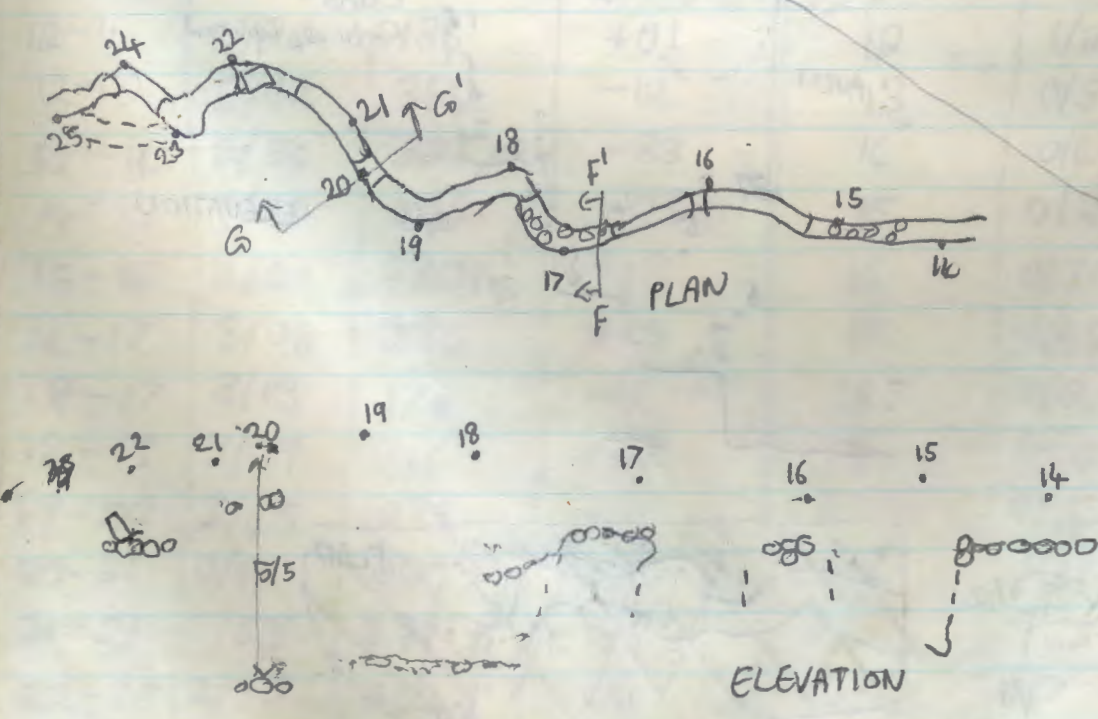 24
22
21
G'
25
23
20
G
19
18
F'
17
F
PLAN
16
15
14
22
21
20
19
18
17
16
15
14
5/5
ELEVATION